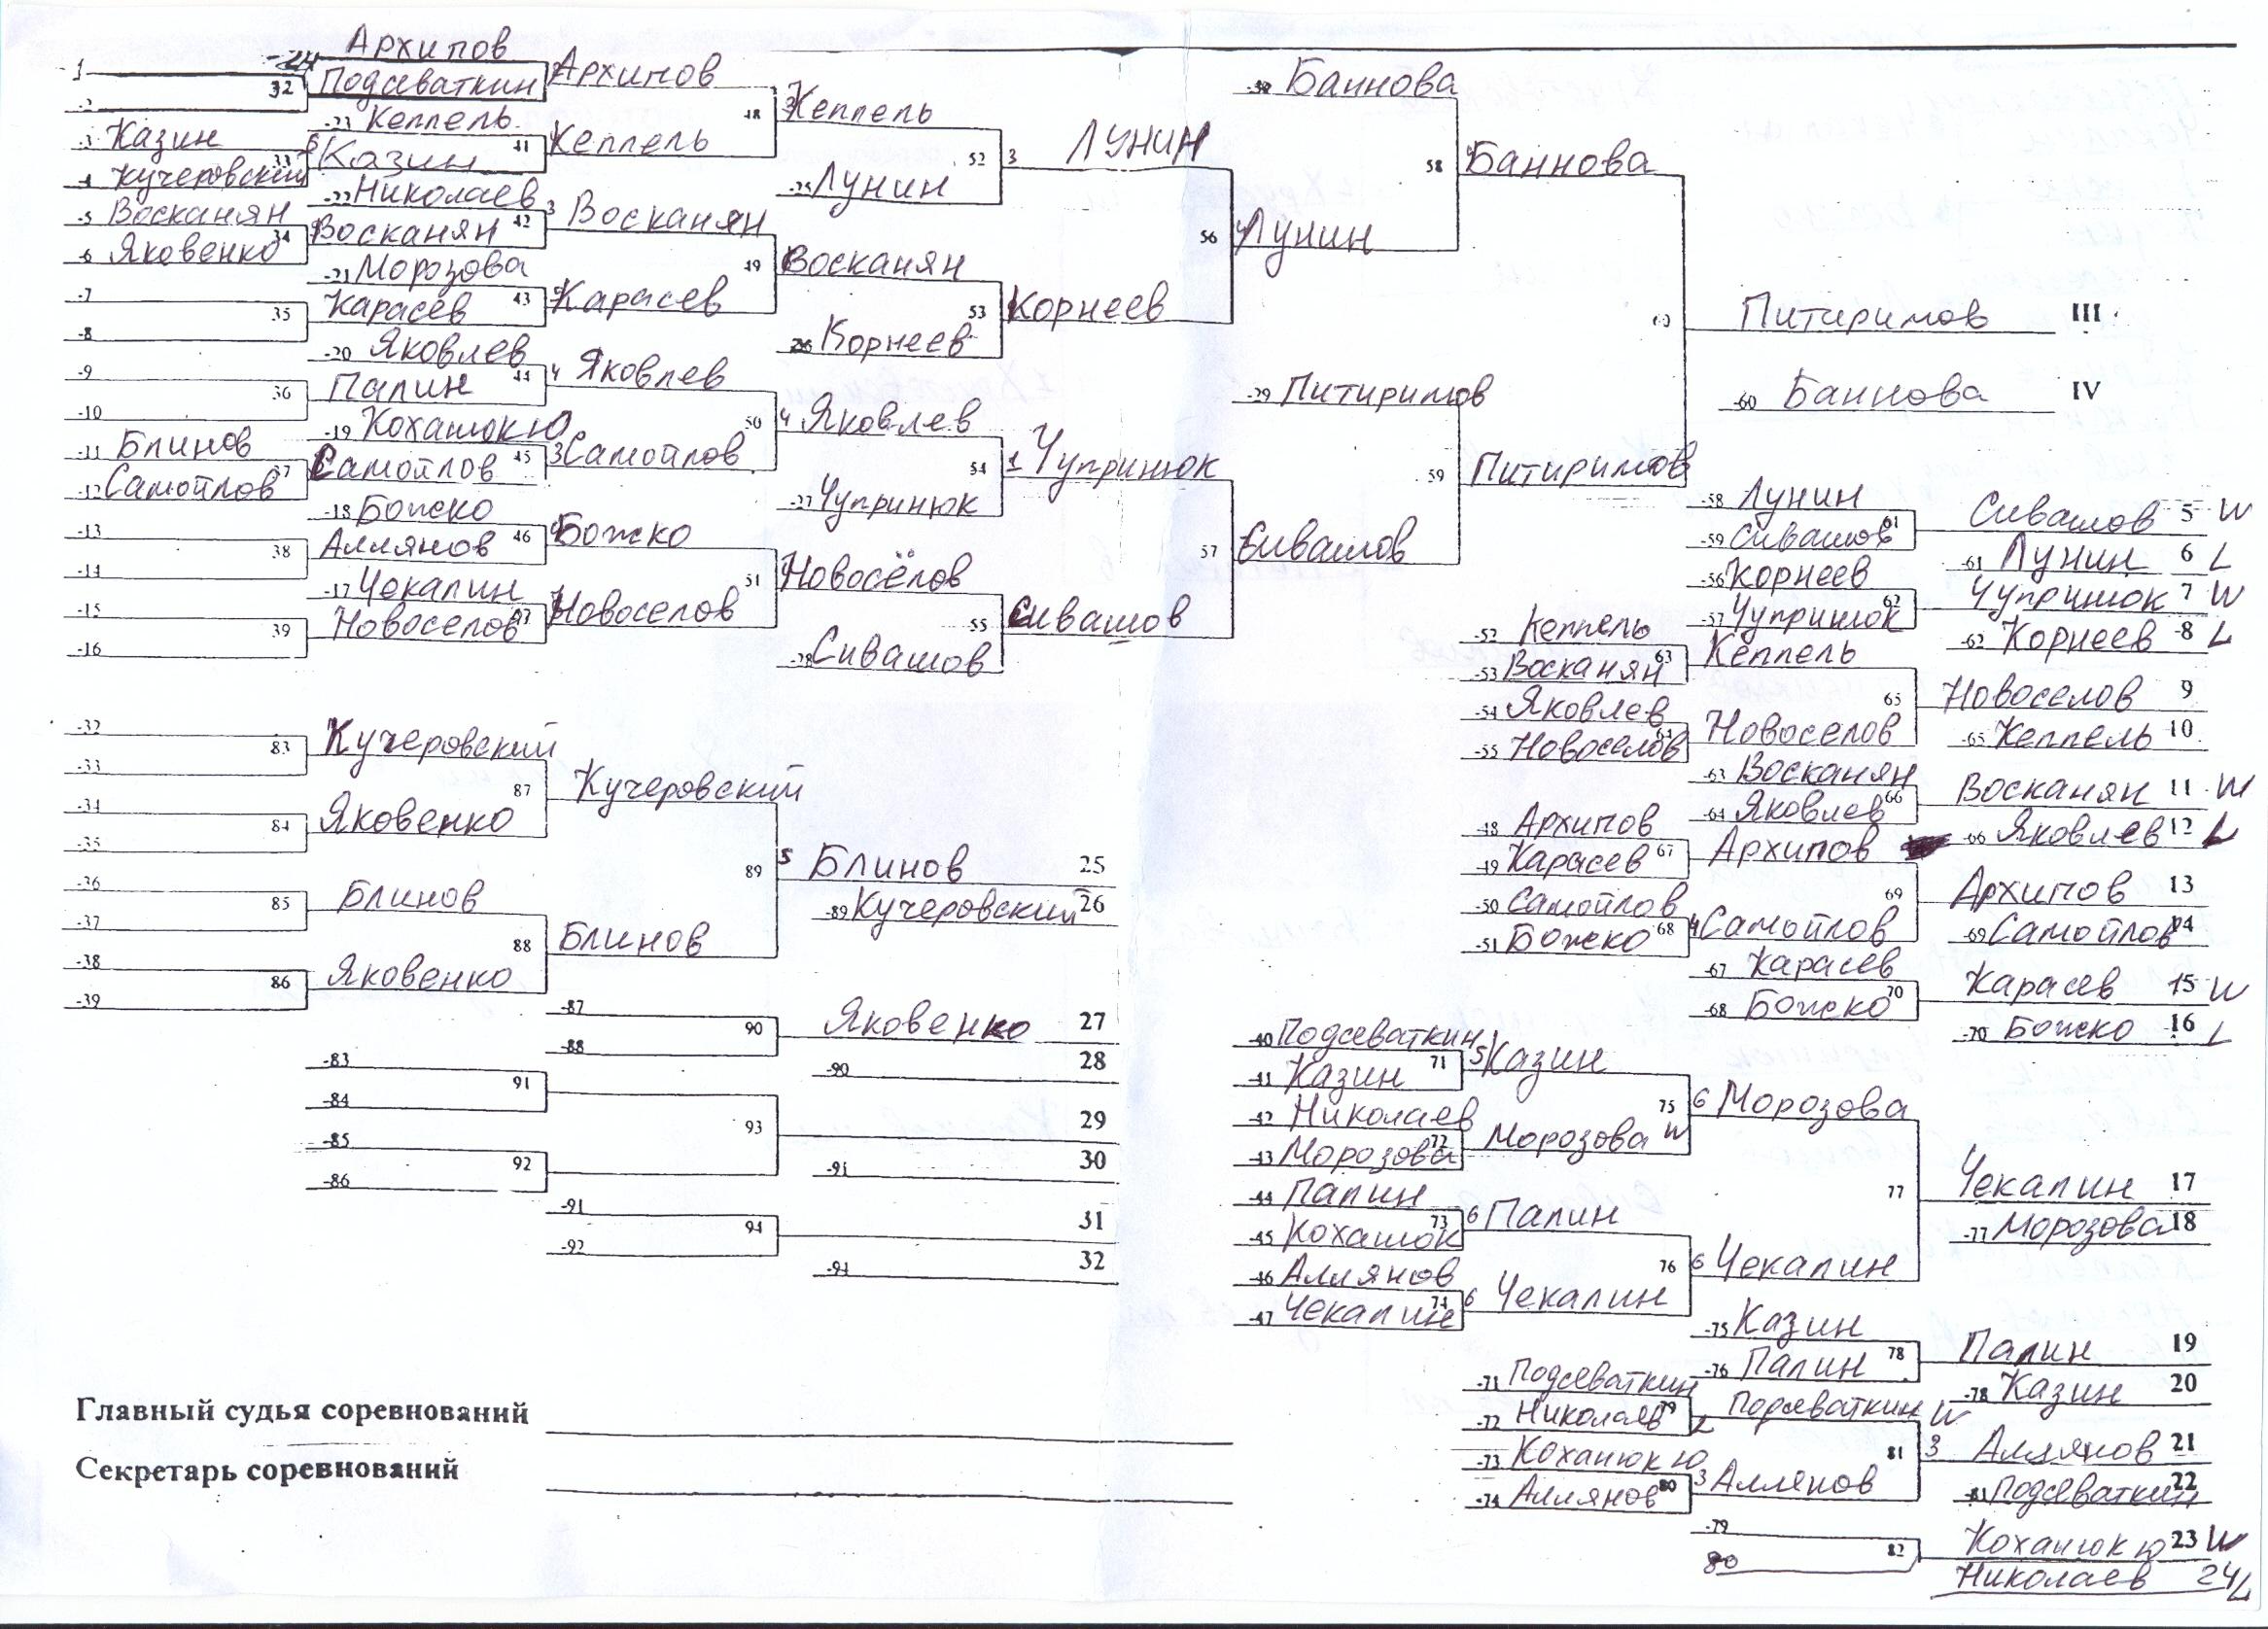 -1
-2
32
-3 Казин
-4 Кучеровский
33
-5 Восканян
-6 Яковенко
34
-7
-8
35
-9
-10
36
-11 Блинов
-12 Самойлов
37
-13
-14
38
-15
-16
39
-24 Архипов
Подсеваткин
-23 Кеппель
Казин 41
-22 Николаев
Восканян 42
-21 Морозова
Карасев 43
-20 Яковлев
Папин 44
-19 Коханюк Ю
Самойлов 45
-18 Божко
Аллянов 46
-17 Чекалин
Новоселов 47
Архипов
Кеппель
48
3 Восканян
Карасев
49
4 Яковлев
3 Самойлов
50
Божко
Новоселов
51
3 Кеппель
-25 Лунин
52
Восканян
-26 Корнеев
53
4 Яковлев
-27 Чупринюк
54
Новосёлов
-28 Сивашов
55
3 Лунин
Корнеев
56
1 Чупринюк
Сивашов
57
-30 Баннова
Лунин
58
-29 Питиримов
Сивашов
59
Баннова
Питиримов
60
Питиримов III
-60 Баннова IV
-58 Лунин
-59 Сивашов 61
Сивашов 5 W
-61 Лунин 6 L
-56 Корнеев
-57 Чупринюк 62
Чупринюк 7 W
-62 Корнеев 8 L
-52 Кеппель
-53 Восканян 63
-54 Яковлев
-55 Новоселов 64
Кеппель
Новоселов
65
Новоселов 9
-65 Кеппель 10
-63 Восканян
-64 Яковлев 66
Восканян 11 W
-66 Яковлев 12 L
-48 Архипов
-49 Карасев 67
-50 Самойлов
-51 Божко 68
Архипов
4 Самойлов
69
Архипов 13
-69 Самойлов 14
-67 Карасев
-68 Божко 70
Карасев 15 W
-70 Божко 16 L
-32
-33
83
-34
-35
84
-36
-37
85
-38
-39
86
Кучеровский
Яковенко
87
Блинов
Яковенко
88
Кучеровский
Блинов
89
5 Блинов 25
-89 Кучеровский 26
-87
-88
90
Яковенко 27
-90 28
-83
-84
91
-85
-86
92
93
29
-91 30
-91
-92
94
31
-94 32
-40 Подсеваткин
-41 Казин 71
-42 Николаев
-43 Морозова 72
-44 Папин
-45 Коханюк 73
-46 Аллянов
-47 Чекалин 74
5 Казин
Морозова W
75
6 Папин
6 Чекалин
76
6 Морозова
6 Чекалин
77
Чекалин 17
-77 Морозова 18
-75 Казин
-76 Папин 78
Папин 19
-78 Казин 20
-71 Подсеваткин
-72 Николаев 79 L
-73 Коханюк Ю
-74 Аллянов 80
Подсеваткин W
3 Аллянов
81
3 Аллянов 21
-81 Подсеваткин 22
-79
80
82
Коханюк Ю 23 W
Николаев 24 L
Главный судья соревнований
Секретарь соревнований